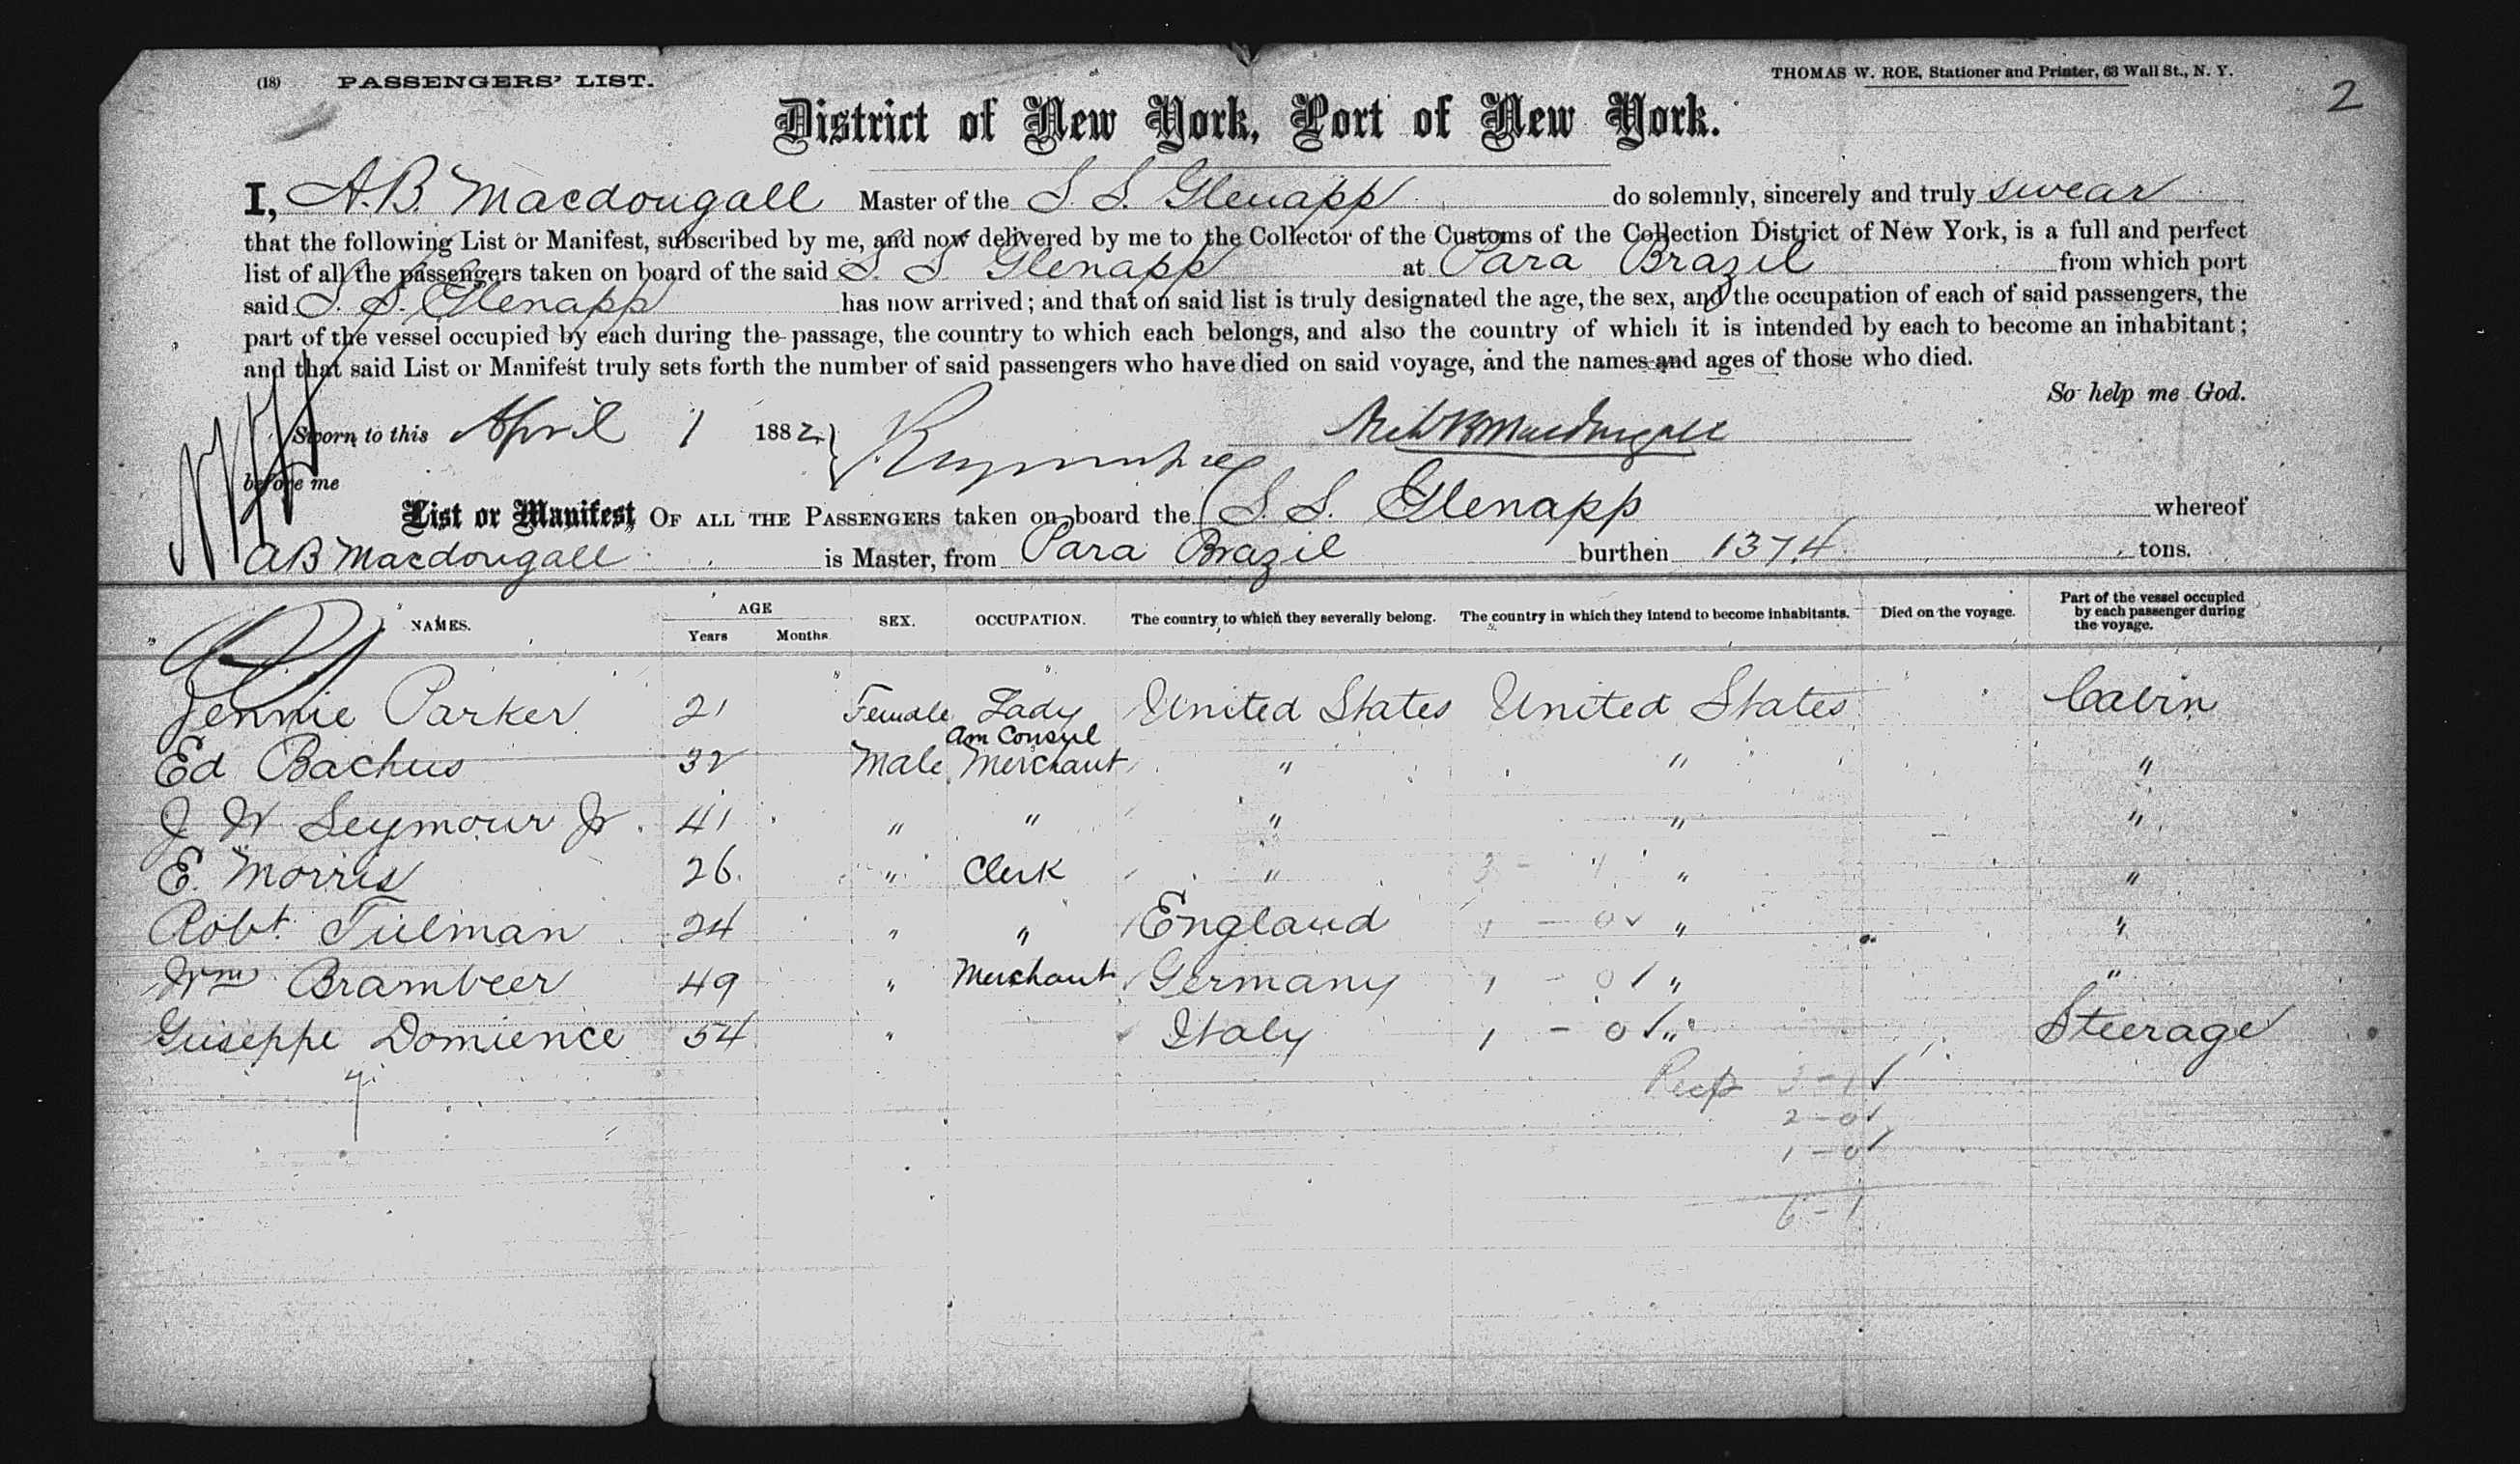 (18) PASSENGERS' LIST.
THOMAS W. ROE, Stationer and Printer, 63 Wall St., N. Y.
2
District of New York, Port of New York.
I, A. B. Macdougall Master of the S. S. Glenapp do solemnly, sincerely and truly swear
that the following List or Manifest, subscribed by me, and now delivered by me to the Collector of the Customs of the Collection District of New York, is a full and perfect
list of all the passengers taken on board of the said S. S. Glenapp at Para Brazil from which port
said S. S. Glenapp has now arrived; and that on said list is truly designated the age, the sex, and the occupation of each of said passengers, the
part of the vessel occupied by each during the passage, the country to which each belongs, and also the country of which it is intended by each to become an inhabitant;
and that said List or Manifest truly sets forth the number of said passengers who have died on said voyage, and the names and ages of those who died.
So help me God.
Sworn to this April 1 1882 Arch B Macdougall
before me
List or Manifest OF ALL THE PASSENGERS taken on board the S. S. Glenapp whereof
AB Macdougall is Master, from Para Brazil burthen 1374 tons.
NAMES. AGE Years Months SEX. OCCUPATION. The country to which they severally belong. The country in which they intend to become inhabitants. Died on the voyage. Part of the vessel occupied by each passenger during the voyage.
Jennie Parker 21 Female Lady United States United States Cabin
Am Consul
Ed Bachus 32 Male Merchant " " "
J W Seymour Jr. 41 " " " " "
E. Morris 26 " Clerk " " "
Robt. Tulman 24 " " England 1 - 0 ✓ " "
Wm Brambeer 49 " Merchant Germany 1 - 0 ✓ " "
Guseppe Domience 54 " Italy 1 - 0 ✓ " Steerage
7 3 - 1 ✓
2 - 0 ✓
1 - 0 ✓
6 - 1